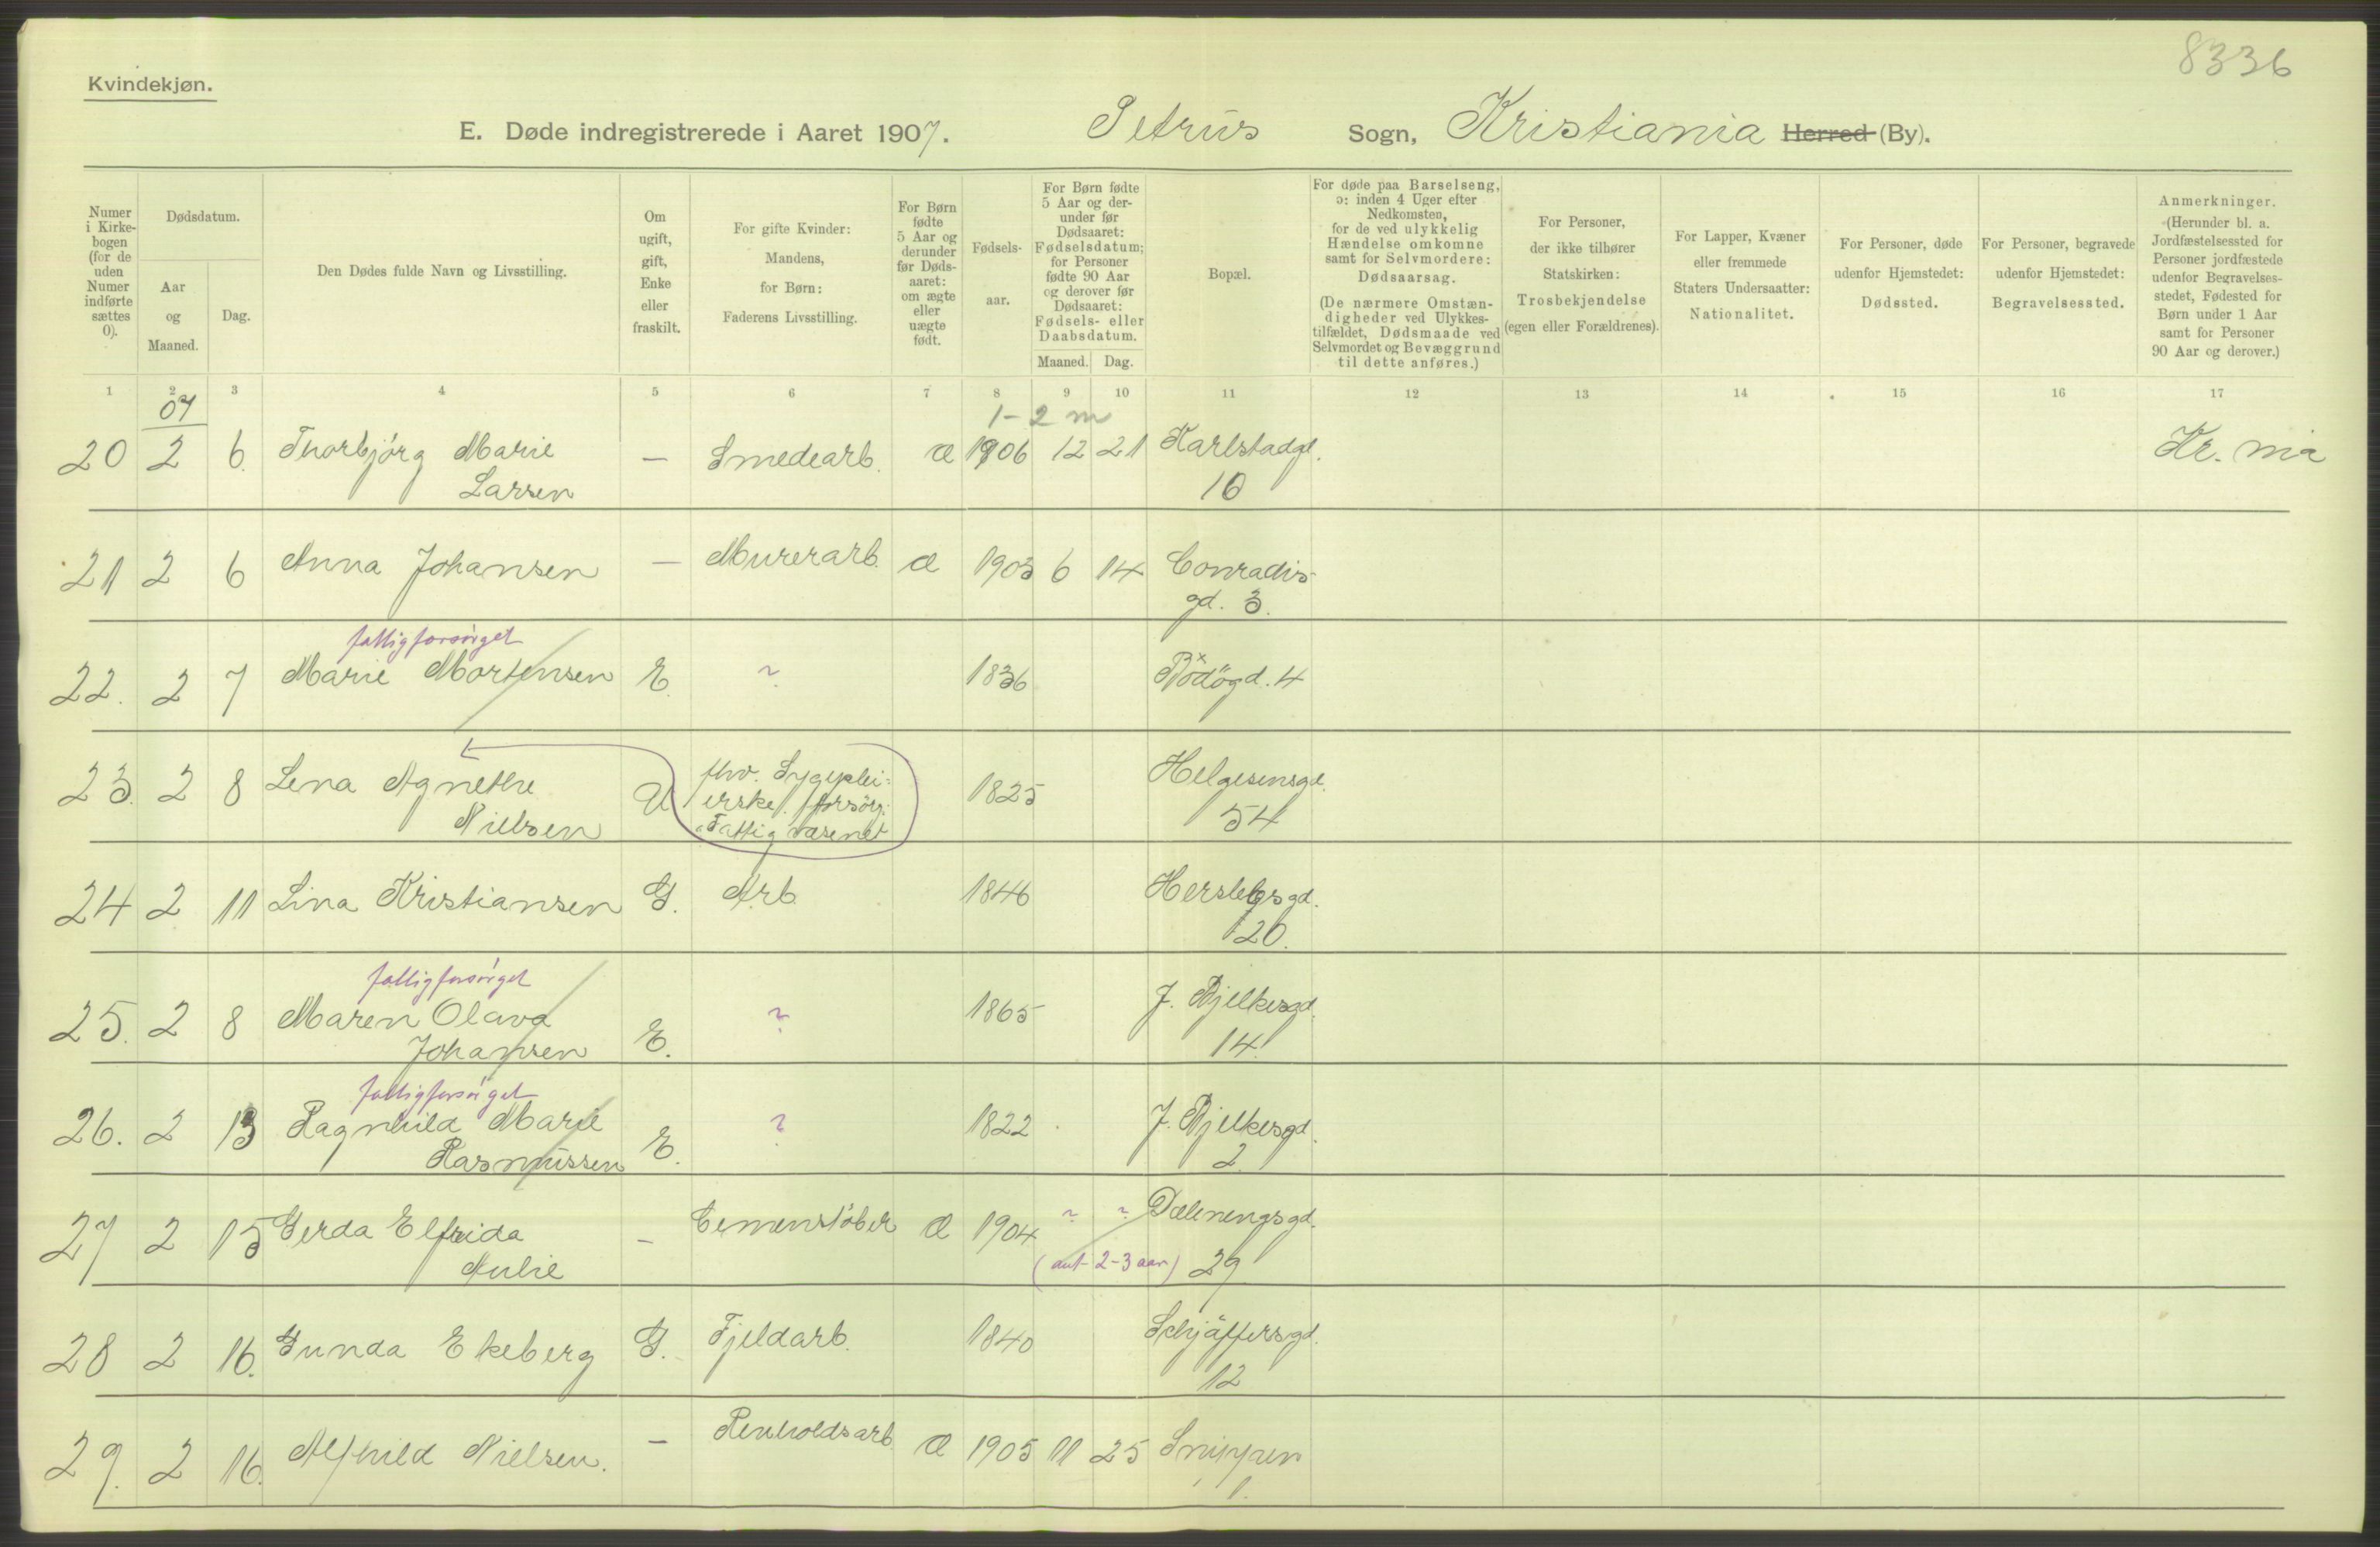 8336
Kvindekjøn.
E. Døde indregistrerede i Aaret 1907. Petrus Sogn, Kristiania Herred (By).
Numer i Kirkebogen (for de uden Numer indførte sættes 0).
Dødsdatum.
Aar og Maaned.
Dag.
Den Dødes fulde Navn og Livsstilling.
Om ugift, gift, Enke eller fraskilt.
For gifte Kvinder: Mandens, for Børn: Faderens Livsstilling.
For Børn fødte 5 Aar og derunder før Dødsaaret: om ægte eller uægte født.
Fødselsaar.
For Børn fødte 5 Aar og derunder før Dødsaaret: Fødselsdatum; for Personer fødte 90 Aar og derover før Dødsaaret: Fødsels- eller Daabsdatum.
Maaned. Dag.
Bopæl.
For døde paa Barselseng, ɔ: inden 4 Uger efter Nedkomsten, for de ved ulykkelig Hændelse omkomne samt for Selvmordere: Dødsaarsag.
(De nærmere Omstændigheder ved Ulykkestilfældet, Dødsmaade ved Selvmordet og Bevæggrund til dette anføres.)
For Personer, der ikke tilhører Statskirken: Trosbekjendelse (egen eller Forældrenes).
For Lapper, Kvæner eller fremmede Staters Undersaatter: Nationalitet.
For Personer, døde udenfor Hjemstedet: Dødssted.
For Personer, begravede udenfor Hjemstedet: Begravelsessted.
Anmerkninger. (Herunder bl. a. Jordfæstelsessted for Personer jordfæstede udenfor Begravelsesstedet, Fødested for Børn under 1 Aar samt for Personer 90 Aar og derover.)
1 2 3 4 5 6 7 8 9 10 11 12 13 14 15 16 17
07
1-2 m
20 2 6. Thorbjörg Marie — Smedearb. æ 1906 12 21 Karlstadgd. Kr.nia
Larsen 10
21 2 6 Anna Johansen — Murerarb. æ 1903 6 14 Conradis
gd. 3.
fattigforsörget
22. 2 7 Marie Mortensen E. ? 1836 Bödögd. 4
23. 2 8 Lena Agnethe U fhv. Sygeplei= 1825 Helgesensgd.
Nielsen erske, forsörg. 54
a Fattigvæsenet
24 2 11 Lina Kristiansen G. Arb. 1846 Herslebsgd.
20.
fattigforsörget
25. 2 8 Maren Olava E. ? 1865 J. Bjelkesgd.
Johansen 14.
fattigforsörget
26. 2 13 Ragnhild Marie E. ? 1822 J. Bjelkesgd.
Rasmussen 2.
27 2 15 Gerda Elfrida — Cementstöber æ 1904 ? ? Dælenengsgd.
(ant. 2-3 aar) 29
28 2 16. Gunda Ekeberg G. Fjeldarb. 1840 Schjäffersgd.
12
29. 2 16. Alfhild Nielsen. — Renholdsarb. æ 1905 11 25 Snippen
1.